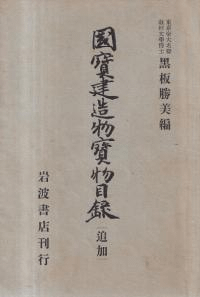 東京帝大名誉
教授文學博士
黑板勝美編
國寶建造物寶物目錄
[追加]
岩波書店刊行